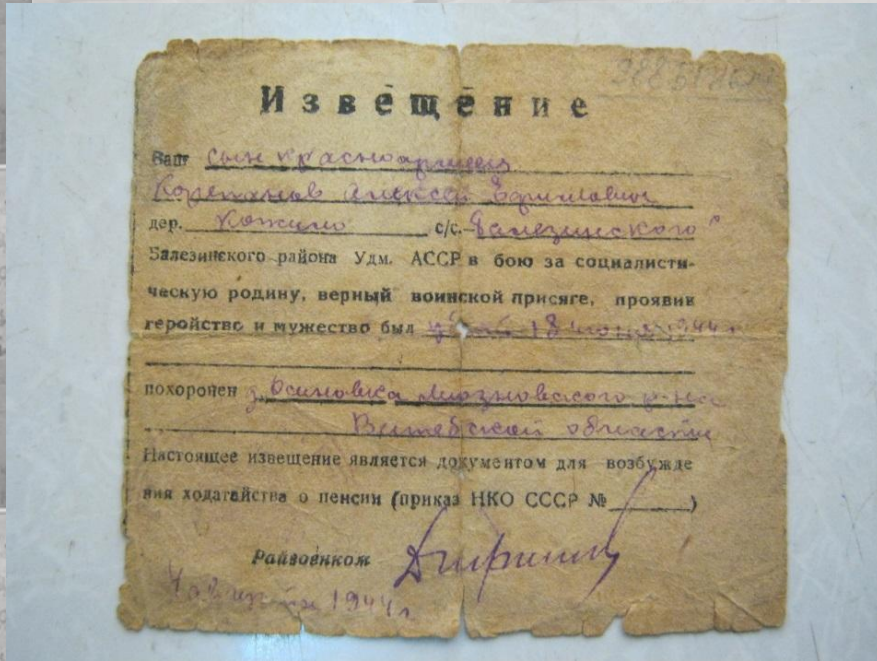 Извещение
Ваш сын красноармеец
Корепанов Алексей Ефимович
дер. Кожило с/с. Балезинского
Балезинского района Удм. АССР в бою за социалисти-
ческую родину, верный воинской присяге, проявив
геройство и мужество был убит 18 июня 1944 г
похоронен д. Осиновка Лиозновского р-на
Витебской области
Настоящее извещение является документом для возбужде
ния ходатайства о пенсии (приказ НКО СССР №______)
Райвоенком
4 августа 1944 г